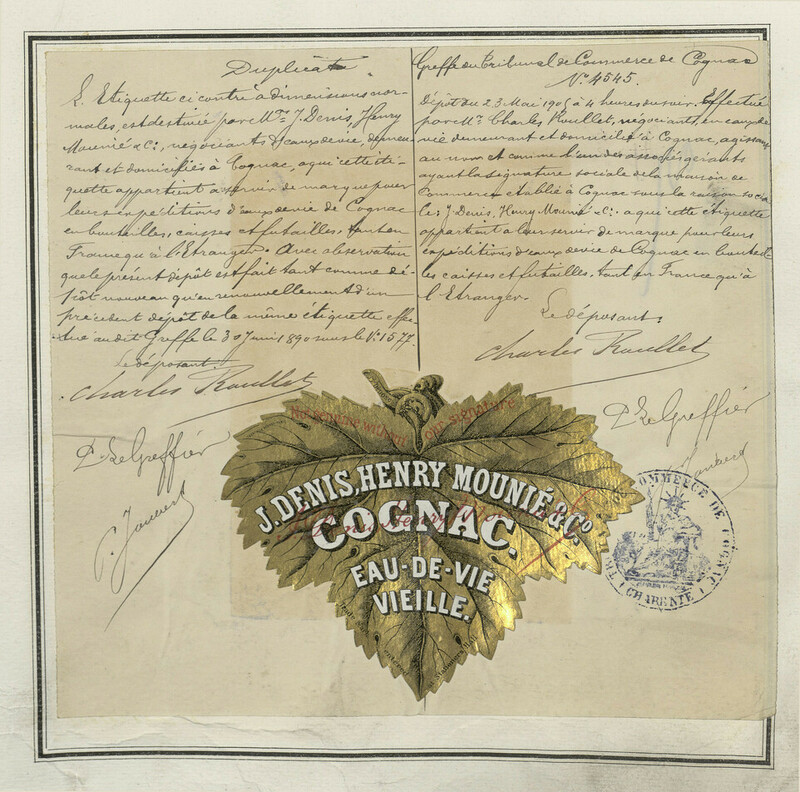 Duplicata
L'Etiquette ci contre à dimensions nor-
males, est destinée par Mrs J. Denis, Henry
Mounié & Cie, négociants d'eaux de vie, demeu-
rant et domiciliés à Cognac, a qui cette éti-
quette appartient à servir de marque pour
leurs expéditions d'eaux de vie de Cognac
en bouteilles, caisses et futailles, tant en
France qu'à l'Etranger. Avec observation
que le présent dépôt est fait tant comme dé-
pôt nouveau qu'en renouvellement d'un
précédent dépôt de la même étiquette effec-
tué au dit Greffe le 30 Juin 1890 sous le No 1577
Le déposant:
Charles Roullet
P. Le Greffier
Greffe du tribunal de Commerce de Cognac
No. 4545.
Dépôt du 23 Mai 1905 à 4 heures du soir. Effectué
par Mr. Charles Roullet, négociant, en eaux de
vie demeurant et domicilié à Cognac, agissant
au nom et comme l'un des associés gérants
ayant la signature sociale de la maison de
Commerce établie à Cognac sous la raison socia
le: J. Denis, Henry Mounié & Cie. a qui cette étiquette
appartient à leur servir de marque pour leurs
expéditions d'eaux de vie de Cognac en bouteil-
les caisses et futailles, tant en France qu'à
l'Etranger.
Le déposant:
Charles Roullet
P. Le Greffier
No genuine without our signature
J. DENIS, HENRY MOUNIÉ & Co
COGNAC.
EAU-DE-VIE
VIEILLE.
COMMERCE DE COGNAC
(CHARENTE)